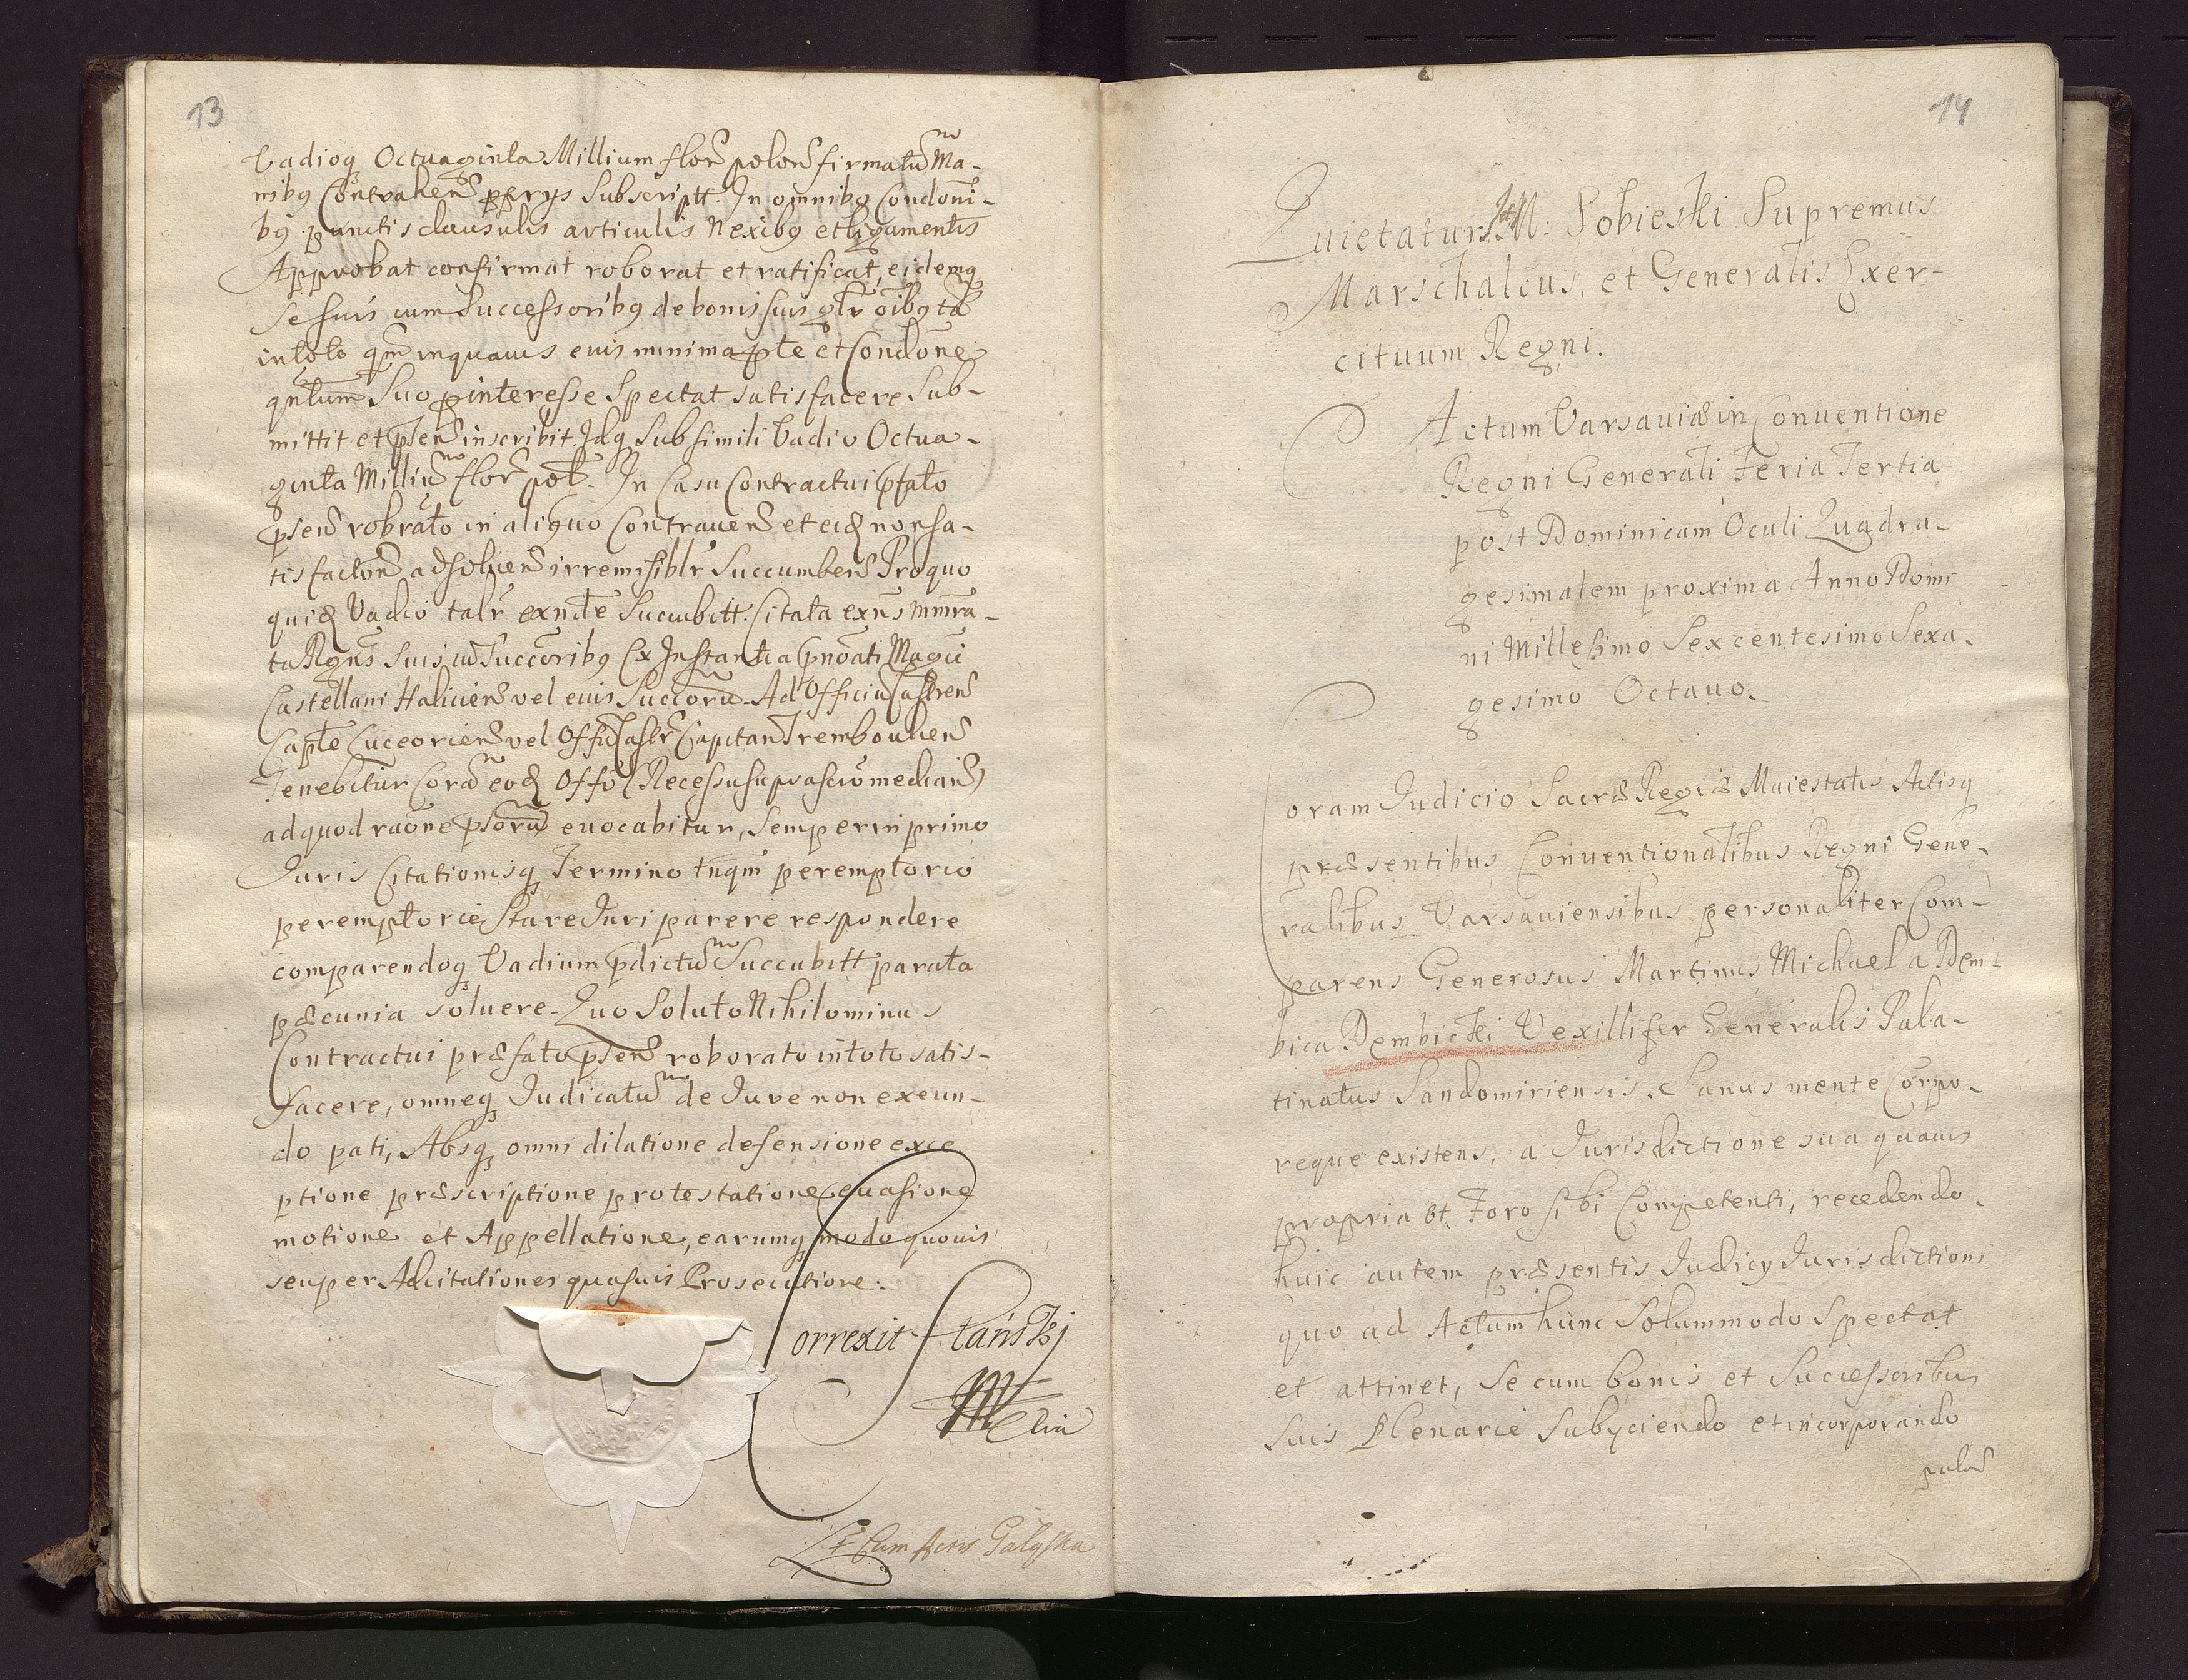 13
Vadioq Octuaginta Millium flor polon firmatu Ma-
nibq Contrahen pprys Subscriptt. In omnibq Condoni-
bq punctis clausulis articulis Nexibq et ligamentis
Approbat confirmat roborat et ratificat, eidemq
Se suis cum Successoribq de bonis suis glr oibq ta
in toto qm in quauis euis minima pte et Condone
qntum Suo pinteresse Spectat satisfacere Sub-
mittit et pten inscribit. Idq Sub simili Vadio Octua-
ginta Milliu flor pol. In Casu Contractui pfato
psen robrato in aliquo Contrauen et eid non sa-
tisfacton ad soluen irremisiblr Succumben Pro quo
quid Vadio talr exncte Succubitt. Citata exns mnra-
ta Rgns suis cu Succoribq Ex Instantia pnoati Magci
Castellani Halicien vel euis Succoru. Ad Officiu Castren
Capte Luceorien vel Offi Castr Capitan Trembowlien
Tenebitur Cora eod Offo (Recessu suprascro median)
ad quod raone psoru euocabitur, semper in primo
Juris Citationisq Termino tnqm peremptorio
peremptorie Stare Juri parere respondere
comparendoq Vadium pdictu Succubitt parata
pæcunia soluere. Quo Soluto Nihilominus
Contractui præfato psen roborato in toto satis-
facere, omneq Judicatu de Jure non exeun-
do pati, Absq omni dilatione defensione exce
ptione præscriptione protestatione euasione
motione et Appellatione, earumq modo quouis
seu per Adcitationes quasuis Prosecutione:
Correxit Stański
Melin
Cum Actis
14
Quietatur M: Sobieski Supremus
Marschalcus, et Generalis Exer-
cituum Regni.
Actum Varsauiæ in Conuentione
Regni Generali Feria Tertia
post Dominicam Oculi Quadra-
gesimalem proxima Anno Domi
ni Millesimo Sexcentesimo Sexa-
gesimo Octauo.
Coram Judicio Sacræ Regiæ Maiestatis Actisq
præsentibus Conuentionalibus Regni Gene-
ralibus Varsauiensibus personaliter Com-
parens Generosus Martinus Michael a Dem-
bica Dembicki Vexillifer Generalis Pala-
tinatus Sandomiriensis. Sanus mente Corpo-
reque existens, a Jurisdictione sua quauis
propria et Foro sibi Competenti, recedendo.
huic autem præsentis Judicy Jurisdictioni
quo ad Actum hunc Solummodo Spectat
et attinet, Se cum bonis et Successoribus
suis Plenarie Subyciendo et incorporando
palam